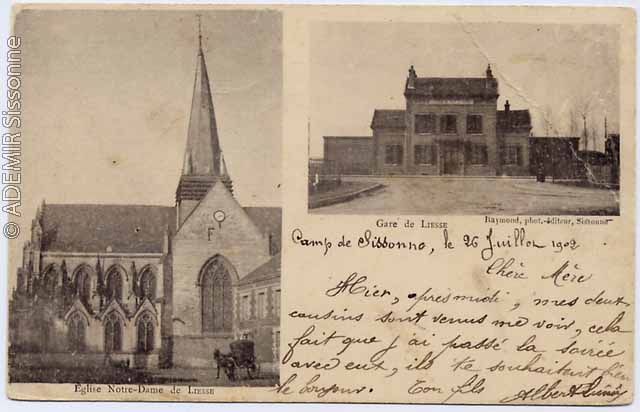 © ADEMIR Sissonne
Église Notre-Dame de LIESSE
Gare de LIESSE
Raymond, phot.-éditeur, Sissonne
Camp de Sissonne, le 26 Juillet 1902
Chère Mère
Hier, après midi, mes deux
cousins sont venus me voir, cela
fait que j'ai passé la soirée
avec eux, ils te souhaitent bien
le bonjour. Ton fils Albert